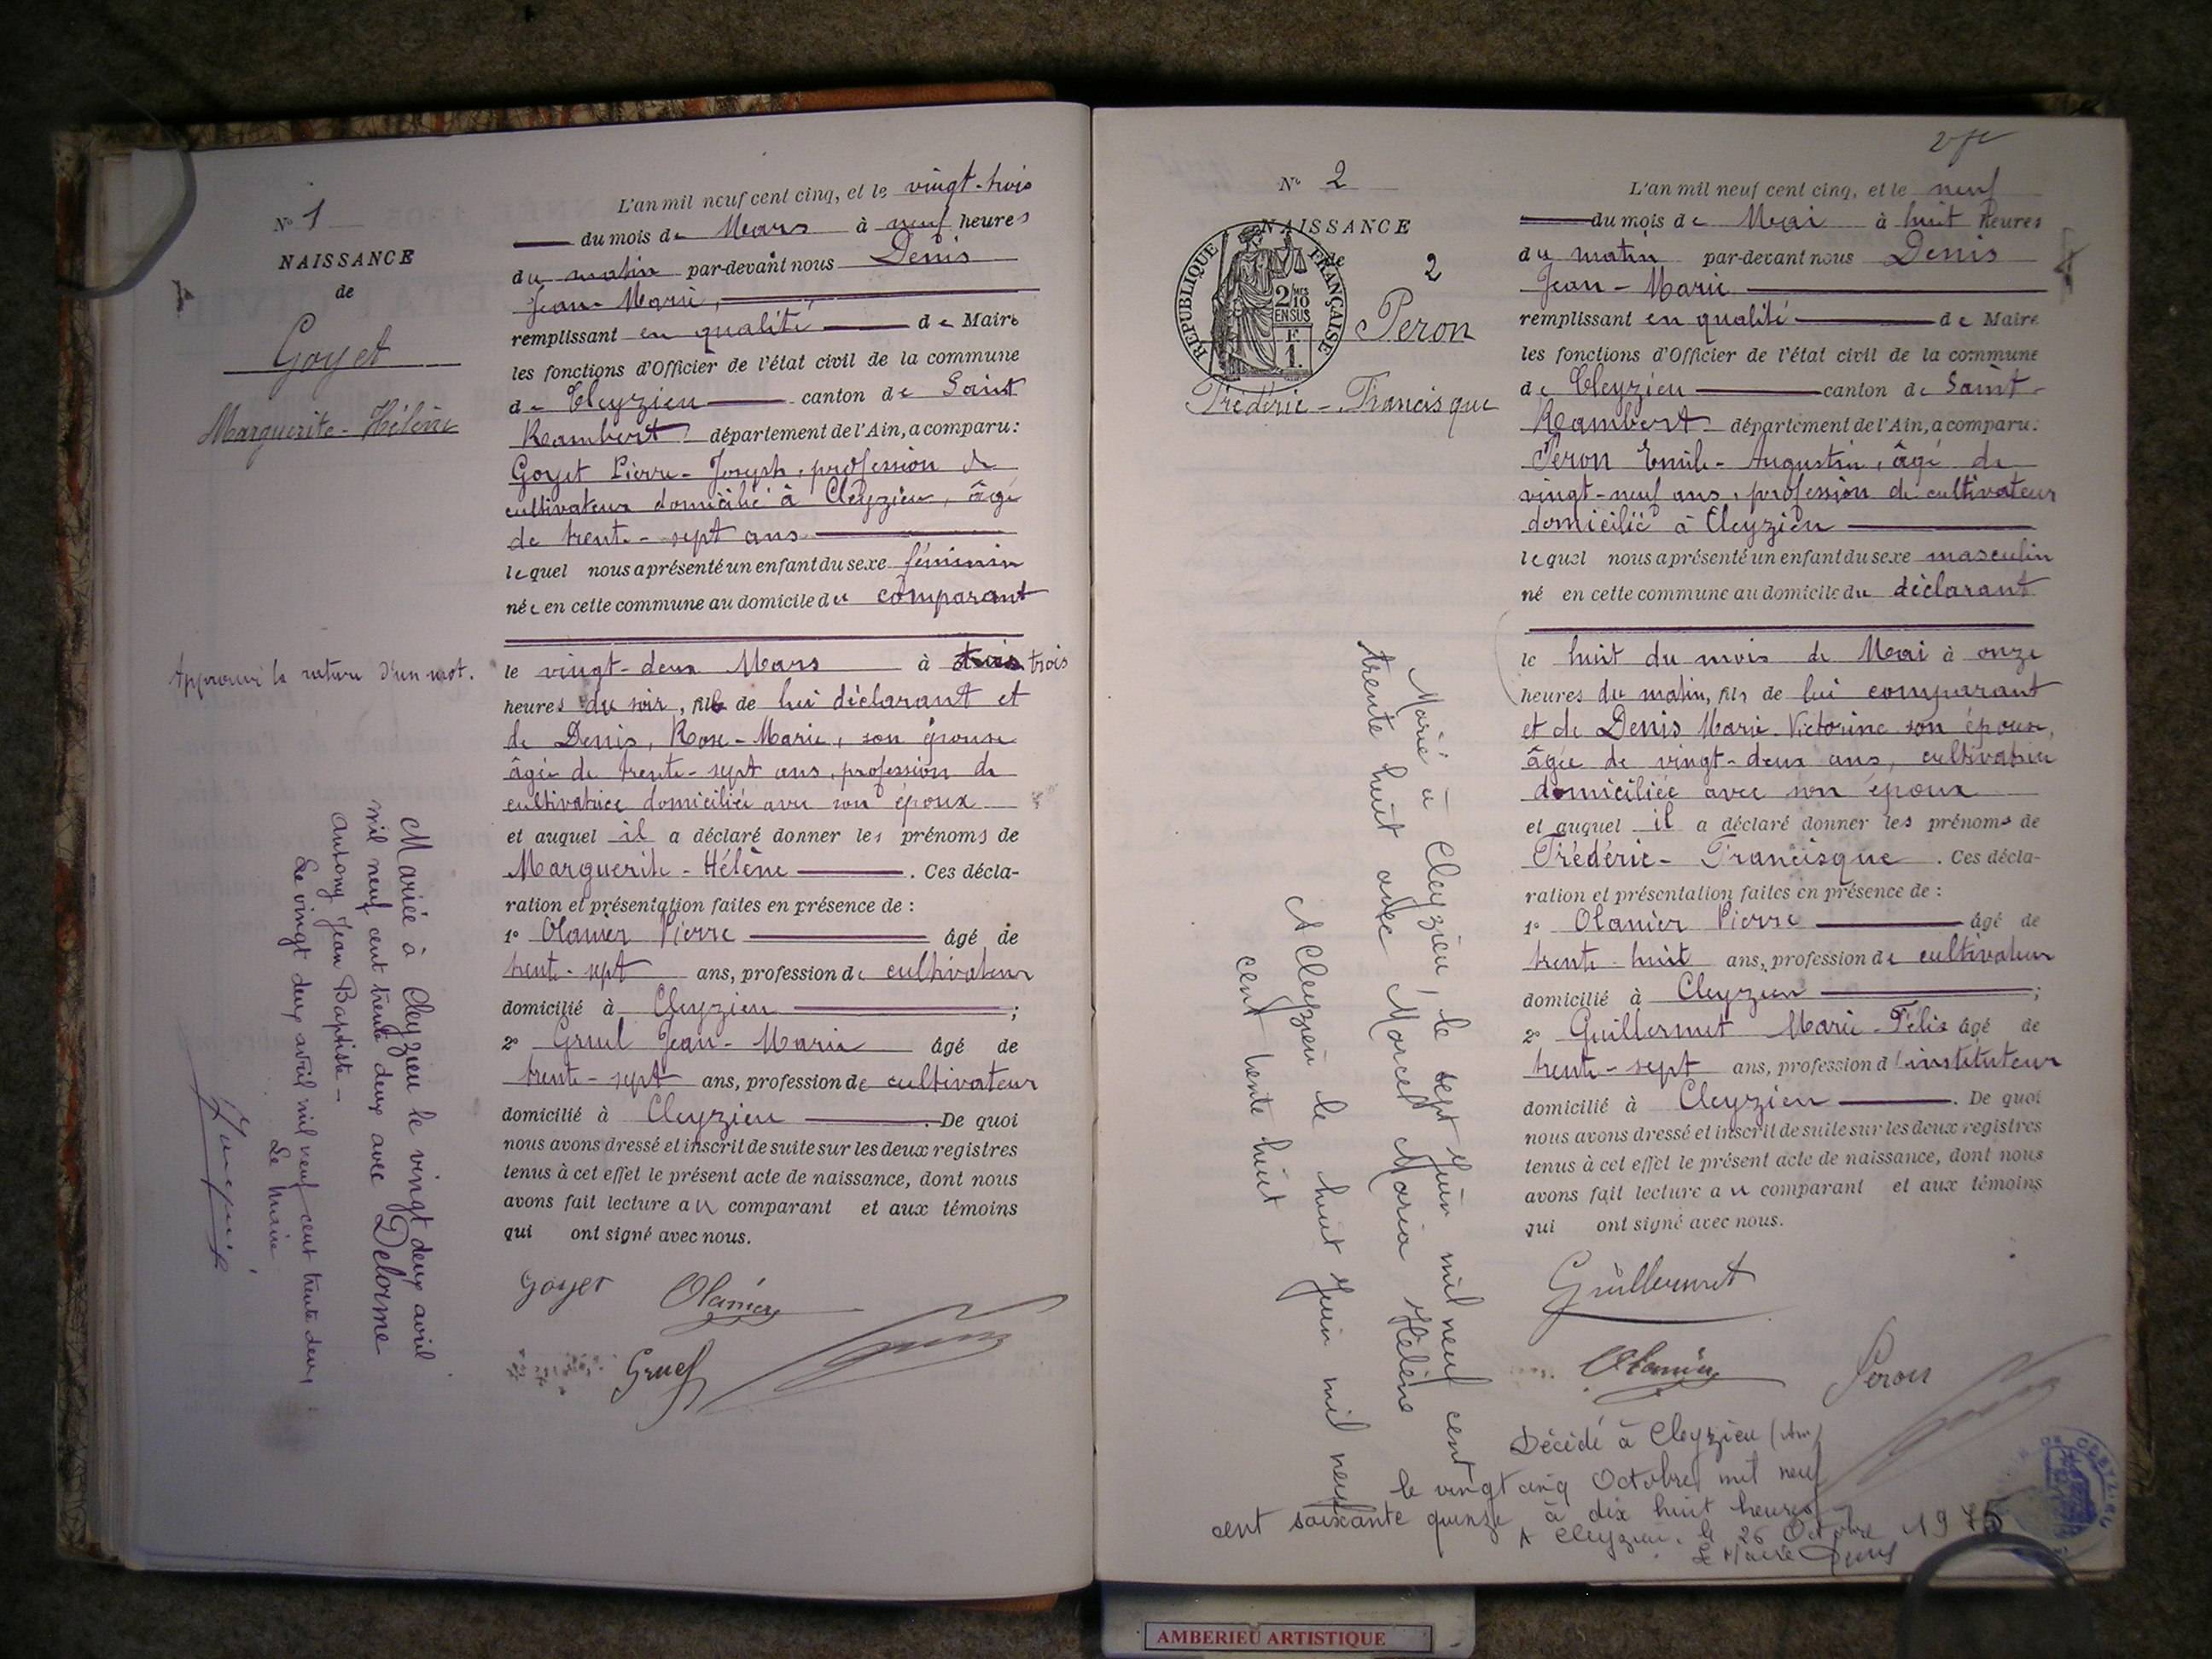 N° 1
NAISSANCE
de
Goyet
Marguerite-Hélène
L'an mil neuf cent cinq, et le vingt-trois
du mois de Mars à neuf heures
du matin par-devant nous Denis
Jean-Marie,
remplissant en qualité de Maire
les fonctions d'Officier de l'état civil de la commune
de Cleyzieu canton de Saint
Rambert département de l'Ain, a comparu :
Goyet Pierre-Joseph, profession de
cultivateur domicilié à Cleyzieu, âgé
de trente-sept ans
lequel nous a présenté un enfant du sexe féminin
née en cette commune au domicile du comparant
Approuvé la rature d'un mot.
le vingt-deux Mars à trois trois
heures du soir, fille de lui déclarant et
de Denis, Rose-Marie, son épouse
âgée de trente-sept ans, profession de
cultivatrice domiciliée avec son époux
et auquel il a déclaré donner les prénoms de
Marguerite-Hélène. Ces décla-
ration et présentation faites en présence de :
1° Olanier Pierre âgé de
trente-sept ans, profession de cultivateur
domicilié à Cleyzieu ;
2° Gruel Jean-Marie âgé de
trente-sept ans, profession de cultivateur
domicilié à Cleyzieu. De quoi
nous avons dressé et inscrit de suite sur les deux registres
tenus à cet effet le présent acte de naissance, dont nous
avons fait lecture au comparant et aux témoins
qui ont signé avec nous.
Goyet Olanier
Gruel
Mariée à Cleyzieu le vingt deux avril
mil neuf cent trente deux avec Delorme
Antony Jean Baptiste -
Le vingt deux avril mil neuf cent trente deux
Le maire
N° 2
NAISSANCE
de
2
RÉPUBLIQUE FRANÇAISE
2/10 MES
EN SUS
F
1.
Peron
Frédéric-Francisque
L'an mil neuf cent cinq, et le neuf
du mois de Mai à huit heures
du matin par-devant nous Denis
Jean-Marie
remplissant en qualité de Maire
les fonctions d'Officier de l'état civil de la commune
de Cleyzieu canton de Saint-
Rambert département de l'Ain, a comparu :
Peron Emile-Augustin, âgé de
vingt-neuf ans, profession de cultivateur
domicilié à Cleyzieu
lequel nous a présenté un enfant du sexe masculin
né en cette commune au domicile du déclarant
le huit du mois de Mai à onze
heures du matin, fils de lui comparant
et de Denis Marie-Victorine son épouse,
âgée de vingt-deux ans, cultivatrice
domiciliée avec son époux
et auquel il a déclaré donner les prénoms de
Frédéric-Francisque. Ces décla-
ration et présentation faites en présence de :
1° Olanier Pierre âgé de
trente-huit ans, profession de cultivateur
domicilié à Cleyzieu ;
2° Guillermet Marie-Félix âgé de
trente-sept ans, profession d'instituteur
domicilié à Cleyzieu. De quoi
nous avons dressé et inscrit de suite sur les deux registres
tenus à cet effet le présent acte de naissance, dont nous
avons fait lecture au comparant et aux témoins
qui ont signé avec nous.
Guillermet
Olanier Peron
Marié à Cleyzieu, le sept Juin mil neuf cent
trente huit avec Marcel Maria Hélène
A Cleyzieu le huit Juin mil neuf
cent trente huit
Décédé à Cleyzieu (Ain)
le vingt cinq Octobre mil neuf
cent soixante quinze à dix huit heures
A Cleyzieu, le 26 Octobre 1975
Le Maire
AMBERIEU ARTISTIQUE